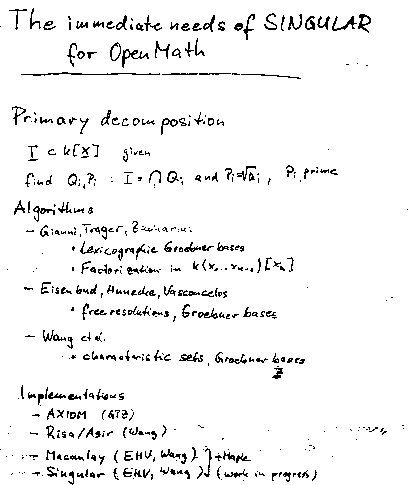 The immediate needs of SINGULAR
for OpenMath
Primary decomposition
I ⊂ k[x] given
find Qi, Pi : I = ∩ Qi and Pi = √Qi, Pi prime
Algorithms
- Gianni, Trager, Zacharias
• Lexicographic Groebner bases
• Factorization in k(x1...xn-1)[xn]
- Eisenbud, Hunecke, Vasconcelos
• free resolutions, Groebner bases
- Wang et al.
• characteristic sets, Groebner bases
Implementations
- AXIOM (GTZ)
- Risa/Asir (Wang)
- Macaulay (EHV, Wang) } + Maple
- Singular (EHV, Wang) (work in progress)